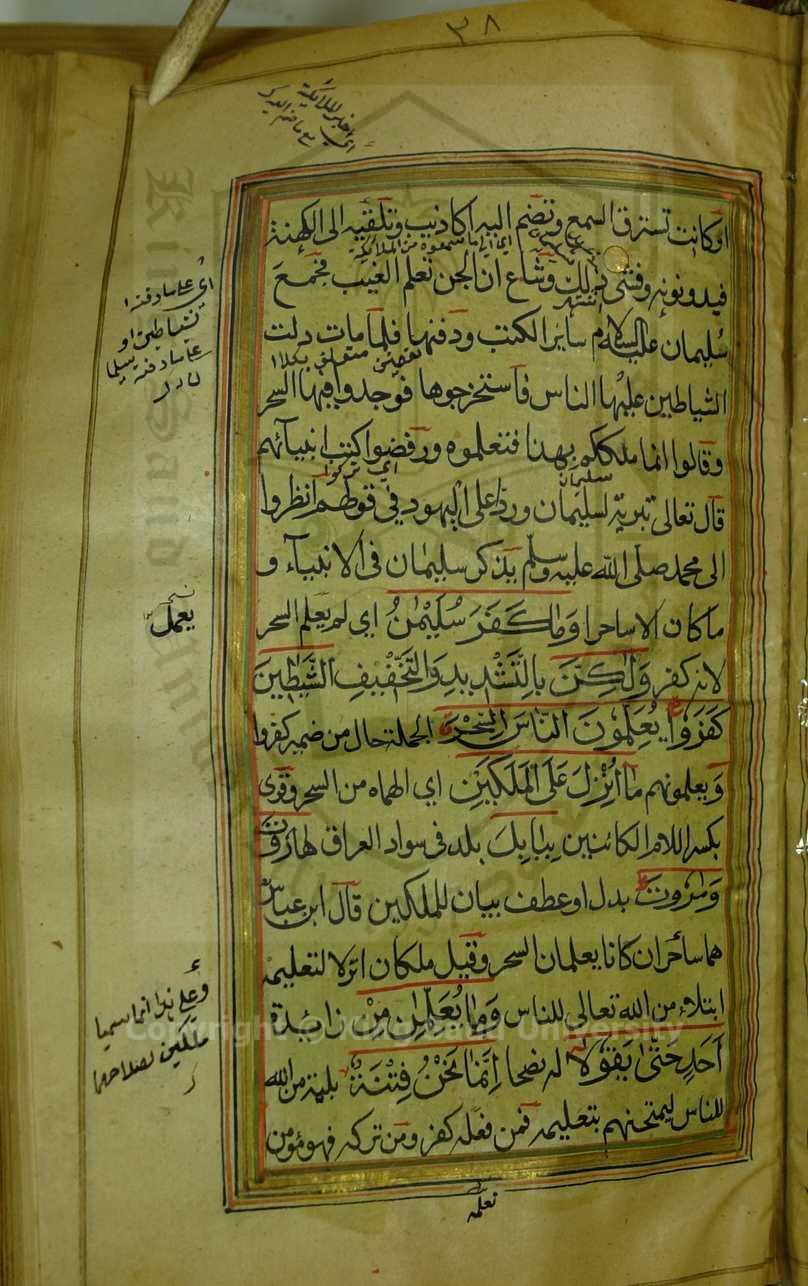 ٣٨
اي اخبر الملائكة
او كانت تسترق السمع وتضم اليه اكاذيب وتلقيه الى الكهنة
اي الى ما سمعوه من الملائكة
فيدونونه وفشى ذلك وشاع ان الجن تعلم الغيب فجمع
سليمان عليه السلام ساير الكتب ودفنها فلما مات دلت
الشياطين عليها الناس فاستخرجوها فوجدوا فيها السحر
وقالوا انما ملككم بهذا فتعلموه ورفضوا كتب انبيائهم
اي تركوا
سليمان
قال تعالى تبرية لسليمان وردا على اليهود في قولهم انظروا
الى محمد صلى الله عليه وسلم يذكر سليمان في الانبياء و
ما كان الا ساحرا وَمَا كَفَرَ سُلَيْمٰنُ اي لم يعلم السحر
لانه كفر وَلٰكِنَّ بالتشديد والتخفيف الشَّيٰطِينَ
كَفَرُوا يُعَلِّمُونَ النَّاسَ السِّحْرَ الجملة حال من ضمير كفروا
وَ يعلمونهم مَا اُنْزِلَ عَلَى الْمَلَكَيْنِ اي الهماه من السحر وقرئ
بكسر اللام الكائنين بِبَابِلَ بلد في سواد العراق هَارُوتَ
وَمٰرُوتَ بدل او عطف بيان للملكين قال ابن عباس
هما ساحران كانا يعلمان السحر وقيل ملكان انزلا لتعليمه
ابتلاء من الله تعالى للناس وَمَا يُعَلِّمٰنِ مِنْ زائدة
اَحَدٍ حَتّٰى يَقُولَا له نصحا اِنَّمَا نَحْنُ فِتْنَةٌ بلية من الله
للناس ليمتحنهم بتعليمه فمن فعله كفر ومن تركه فهو مؤمن
تعلمه
اي على ما دفنه
شياطين او
على ما دفنه سليمان
يعمل
وعلى هذا انما سميا
ملكين لصلاحهما
Copyright © King Saud University
King Saud University